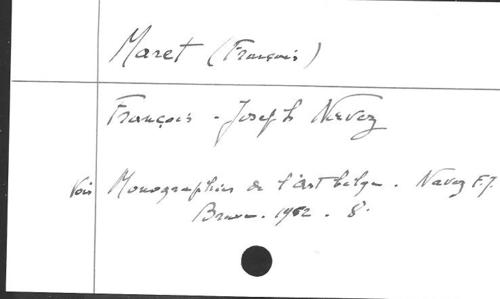 Maret (François)
François - Joseph Navez
Voir Monographies de l'art belge. Navez F.J.
Brux. 1962. 8°.